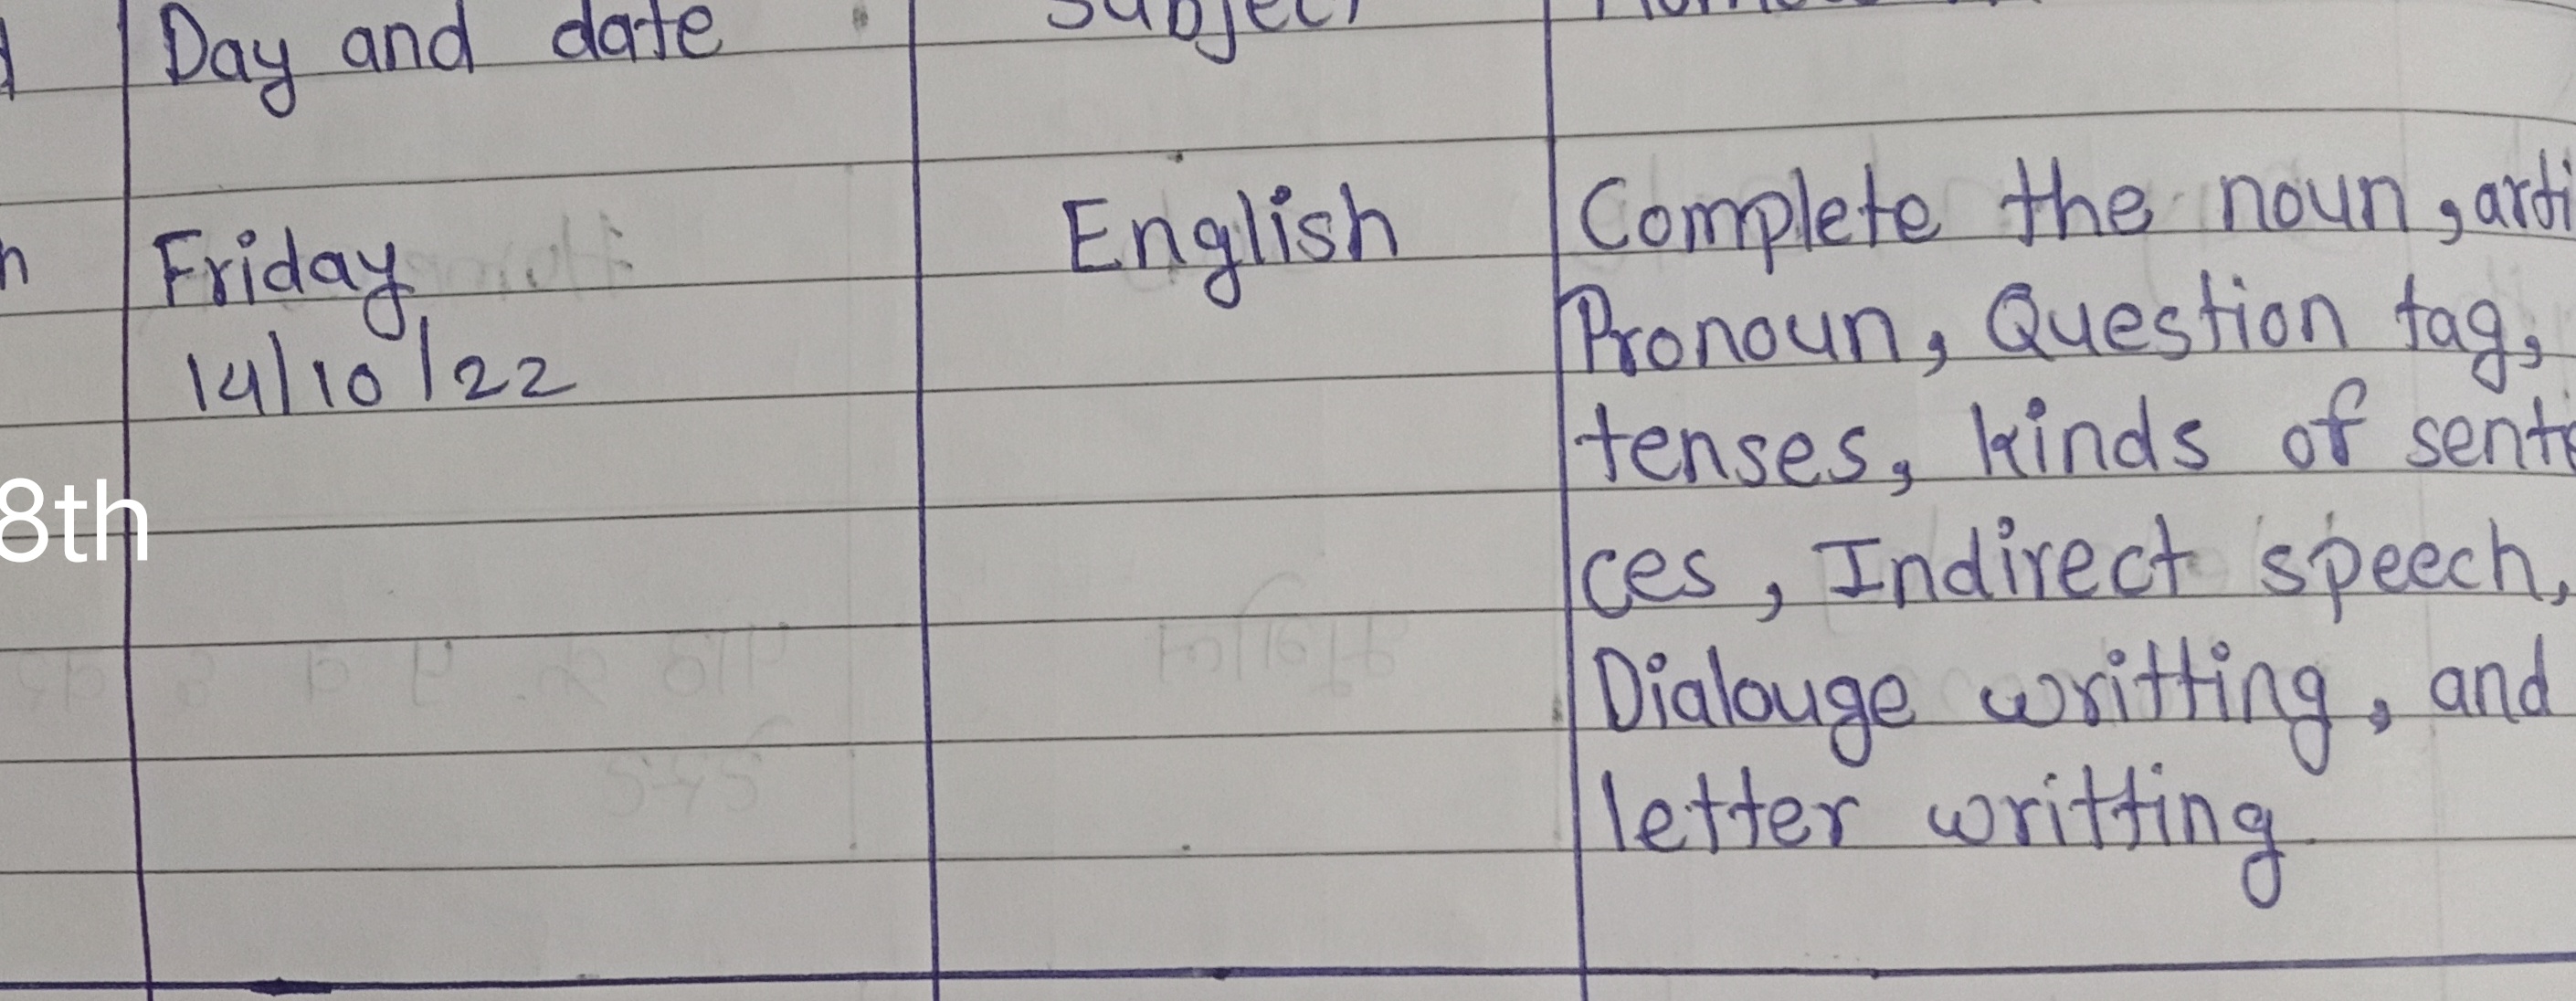 Day and date Subject
Friday English Complete the noun, arti
14/10/22 Pronoun, Question tag,
tenses, kinds of sente
8th
ces, Indirect speech,
Dialouge writting, and
letter writting